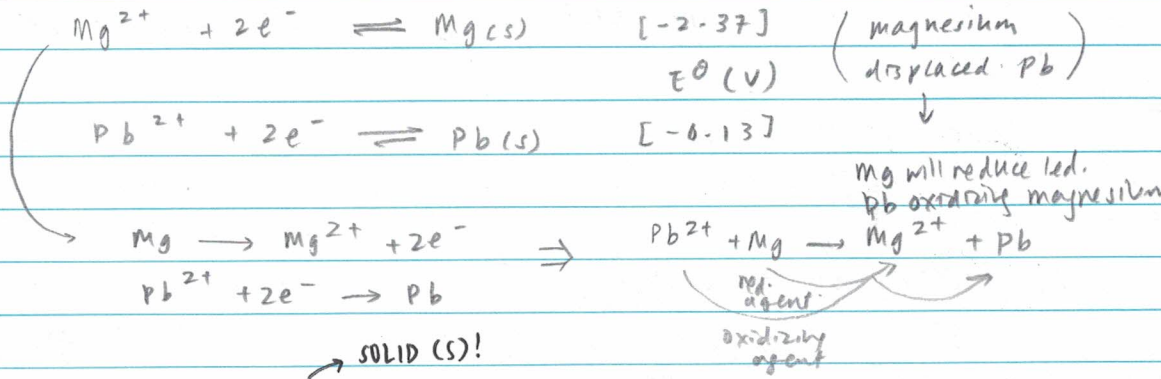 Mg²⁺ + 2e⁻ ⇌ Mg(s) [-2.37] (magnesium
E⁰ (V) displaced. Pb)
Pb²⁺ + 2e⁻ ⇌ Pb(s) [-0.13] ↓
Mg will reduce led.
Pb oxidizing magnesium
Mg → Mg²⁺ + 2e⁻ ⇒ Pb²⁺ + Mg → Mg²⁺ + Pb
Pb²⁺ + 2e⁻ → Pb
red. agent.
oxidizing agent
SOLID (S)!